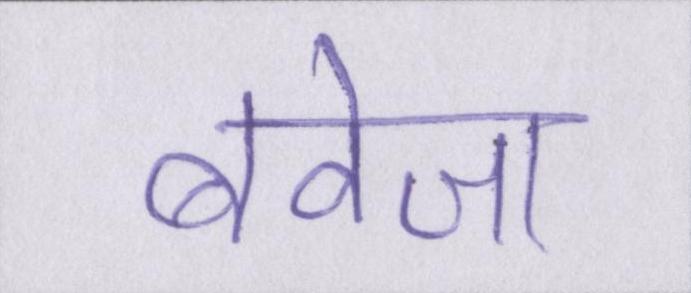 बवेजा